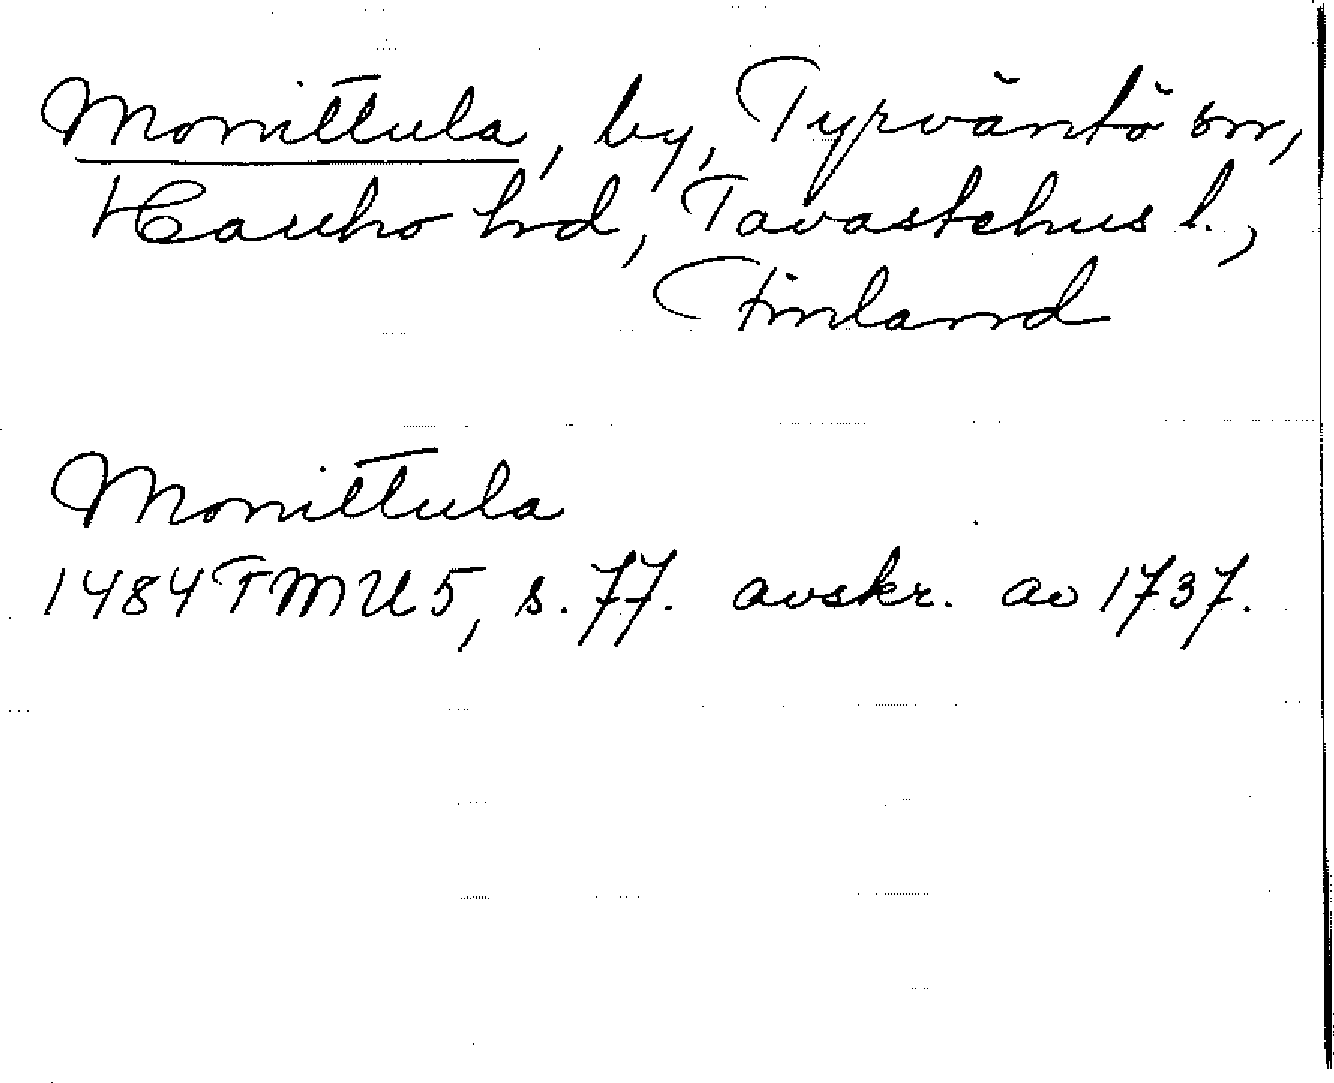 Monittula, by, Tyrväntö sn,
Hauho hd, Tavastehus l.,
Finland
Monittula
1484 FMU 5, s. 77. avskr. av 1737.